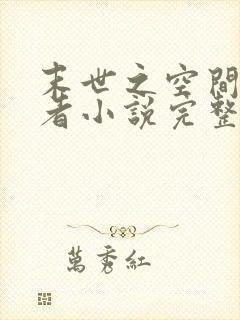 末世之空間
者小說完整
萬秀紅